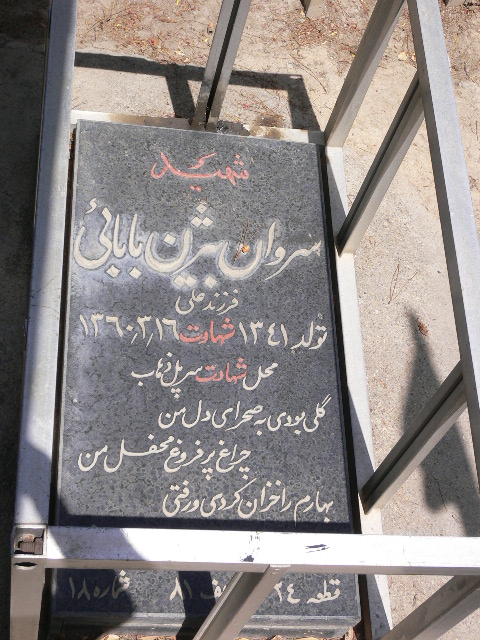 شهید
سروان بیژن بابائی
فرزند علی
تولد ۱۳۴۱ شهادت ۱۳۶۰٫۳٫۱۶
محل شهادت سر پل ذهاب
گلی بودی به صحرای دل من
چراغ پر فروغ محفل من
بهارم را خزان کردی و رفتی
قطعه ۲۴ ۸۱ شماره ۱۸